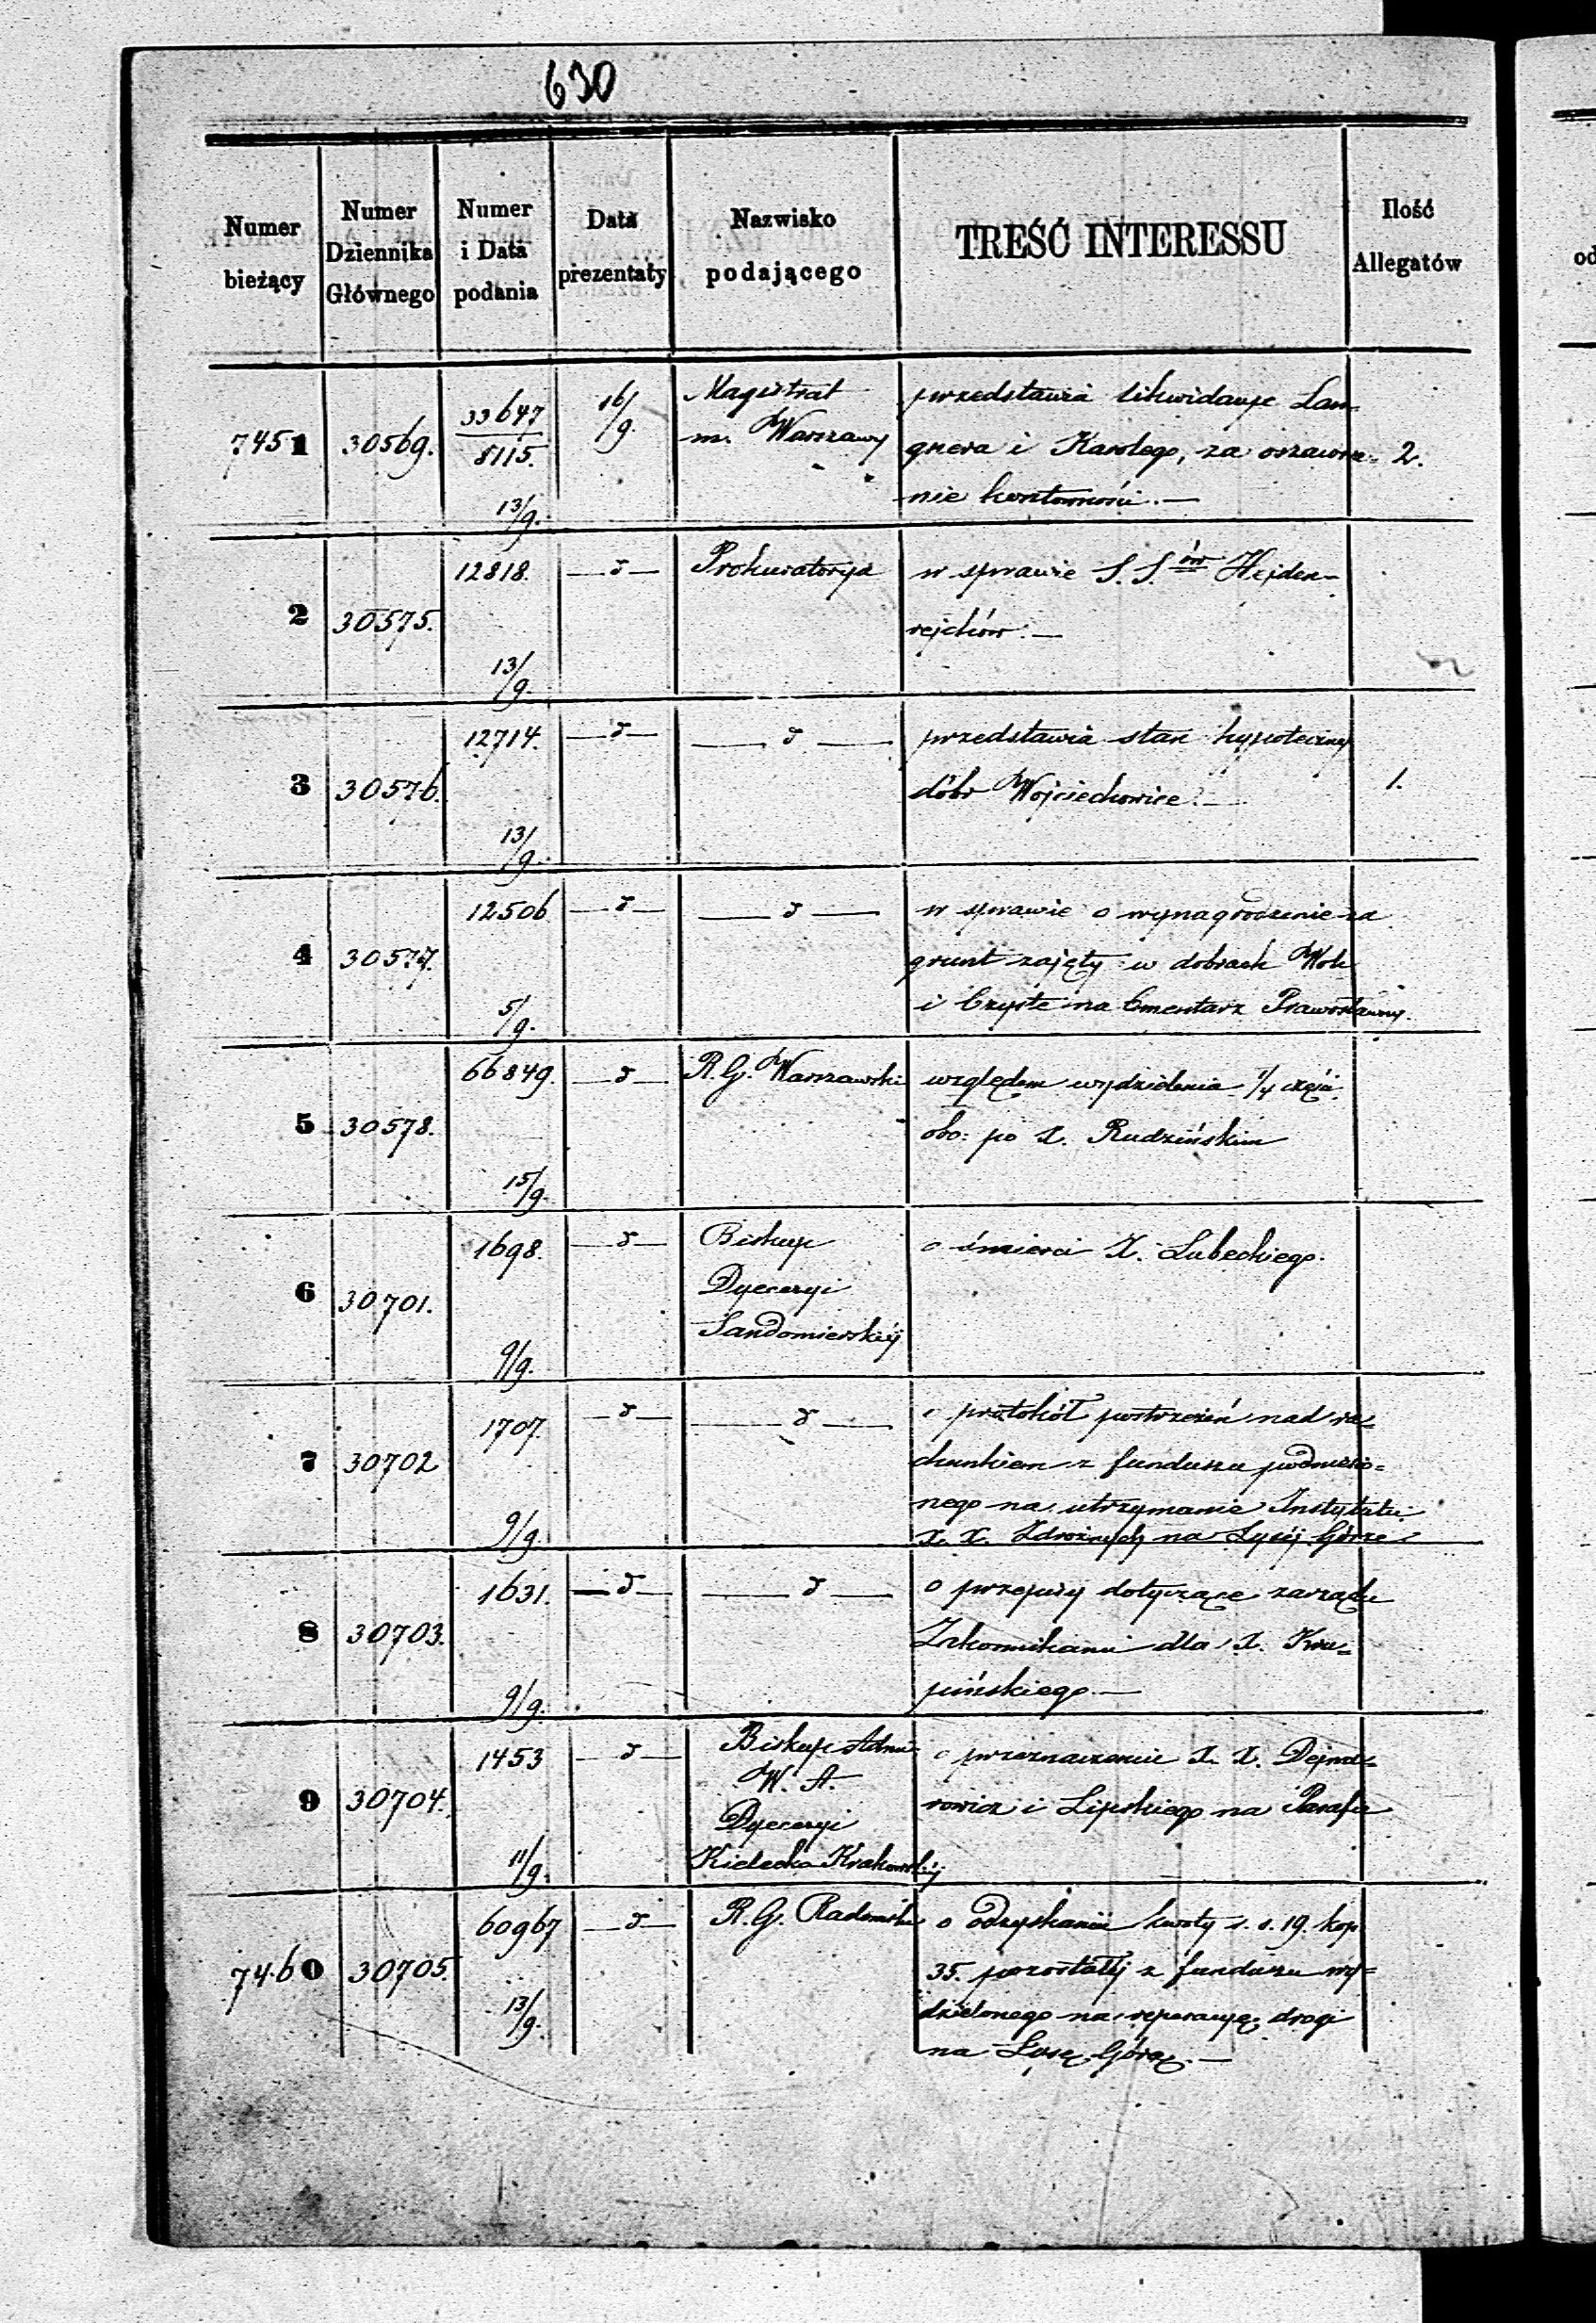 630
Numer bieżący
Numer Dziennika Głównego
Numer i Data podania
Data prezentaty
Nazwisko podającego
TREŚĆ INTERESSU
Ilość Allegatów
7451 30569. 33647/8115. 13/9. 16/9. Magistrat przedstawia likwidacye Lan-
m. Warszawy gnera i Karolego, za 2.
nie
2 30575. 12818. 13/9. —d— Prokuratorya w sprawie S. S.ów Hejden-
rejchów.—
3 30576. 12714. 13/9. —d— —d— przedstawia stan hypoteczny
dóbr Wojciechowice.— 1.
4 30577. 12506 5/9. —d— —d— w sprawie o wynagrodzenie za
grunt zajęty w dobrach Wola
i Czyste na Cmentarz Prawosławny.
5 30578. 66849. 15/9. —d— R. G. Warszawski względem wydzielenia 1/4 części
obo: po X. Rudzińskim
6 30701. 1698. 9/9. —d— Biskup o śmierci X. Lubeckiego.
Dyecezyi
Sandomierskiéj
7 30702 1707. 9/9. —d— —d— protokół postrzeżeń nad ra-
chunkiem z funduszu podniesio=
nego na utrzymanie Instytutu
X. X. Zdrożnych na Łyséj Górze
8 30703. 1631. 9/9. —d— —d— o przepisy dotyczące zarządu
Zakonnikami dla X. Kru=
pińskiego.—
9 30704. 1453 11/9. —d— Biskup Adm: o przeznaczenie X. X.
W. A. i Lipskiego na Parafie
Dyecezyi
Kielecko Krakowskiéj
7460 30705. 60967 13/9. —d— R. G. Radomski o odzyskanie kwoty r. s. 19. kop
35. pozostałéj z funduszu wy=
dzielonego na reperacyą drogi
na Łysę Górę.—